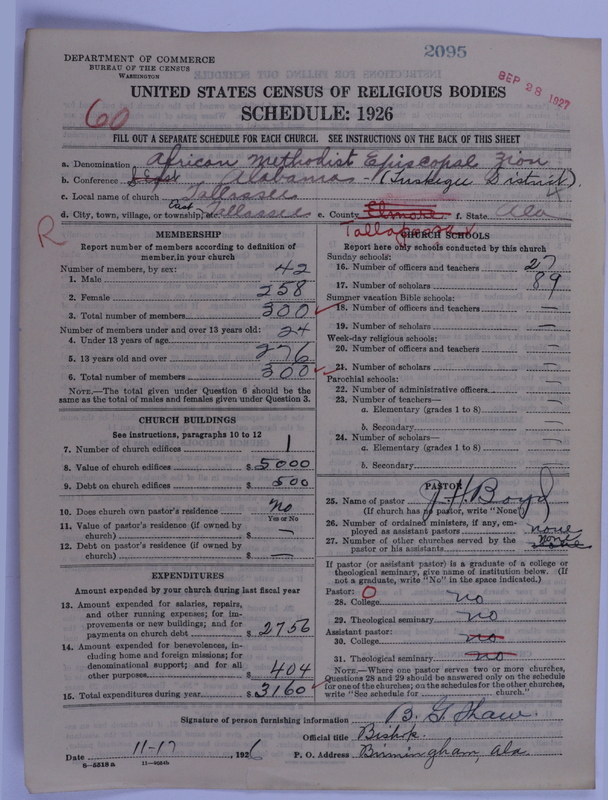 2095
DEPARTMENT OF COMMERCE
BUREAU OF THE CENSUS
WASHINGTON
SEP 28 1927
UNITED STATES CENSUS OF RELIGIOUS BODIES
SCHEDULE: 1926
60
FILL OUT A SEPARATE SCHEDULE FOR EACH CHURCH. SEE INSTRUCTIONS ON THE BACK OF THIS SHEET
a. Denomination African Methodist Episcopal Zion
b. Conference Alabama - (Tuskigee District)
c. Local name of church Tallassee
d. City, town, village, or township, etc. East Tallassee e. County Elmore f. State Ala
Tallapoosa
R
MEMBERSHIP
Report number of members according to definition of member, in your church
Number of members, by sex:
1. Male 42
2. Female 258
3. Total number of members 300
Number of members under and over 13 years old:
4. Under 13 years of age 24
5. 13 years old and over 276
6. Total number of members 300
NOTE.—The total given under Question 6 should be the same as the total of males and females given under Question 3.
CHURCH BUILDINGS
See instructions, paragraphs 10 to 12
7. Number of church edifices 1
8. Value of church edifices $ 5000
9. Debt on church edifices $ 500
10. Does church own pastor's residence No
Yes or No
11. Value of pastor's residence (if owned by church) $ —
12. Debt on pastor's residence (if owned by church) $ —
EXPENDITURES
Amount expended by your church during last fiscal year
13. Amount expended for salaries, repairs, and other running expenses; for improvements or new buildings; and for payments on church debt $ 2756
14. Amount expended for benevolences, including home and foreign missions; for denominational support; and for all other purposes $ 404
15. Total expenditures during year $ 3160
CHURCH SCHOOLS
Report here only schools conducted by this church
Sunday schools:
16. Number of officers and teachers 27
17. Number of scholars 89
Summer vacation Bible schools:
18. Number of officers and teachers —
19. Number of scholars —
Week-day religious schools:
20. Number of officers and teachers —
21. Number of scholars —
Parochial schools:
22. Number of administrative officers —
23. Number of teachers—
a. Elementary (grades 1 to 8) —
b. Secondary —
24. Number of scholars—
a. Elementary (grades 1 to 8) —
b. Secondary —
PASTOR
25. Name of pastor J. H. Boyd
(If church has no pastor, write "None")
26. Number of ordained ministers, if any, employed as assistant pastors none
27. Number of other churches served by the pastor or his assistants none
If pastor (or assistant pastor) is a graduate of a college or theological seminary, give name of institution below. (If not a graduate, write "No" in the space indicated.)
Pastor: O
28. College no
29. Theological seminary no
Assistant pastor:
30. College no
31. Theological seminary no
NOTE.—Where one pastor serves two or more churches, Questions 28 and 29 should be answered only on the schedule for one of the churches; on the schedules for the other churches, write "See schedule for church."
Signature of person furnishing information B. G. Shaw.
Official title Bishop.
Date 11-17 1926 P. O. Address Birmingham, Ala.
8—5518a 11—9084b